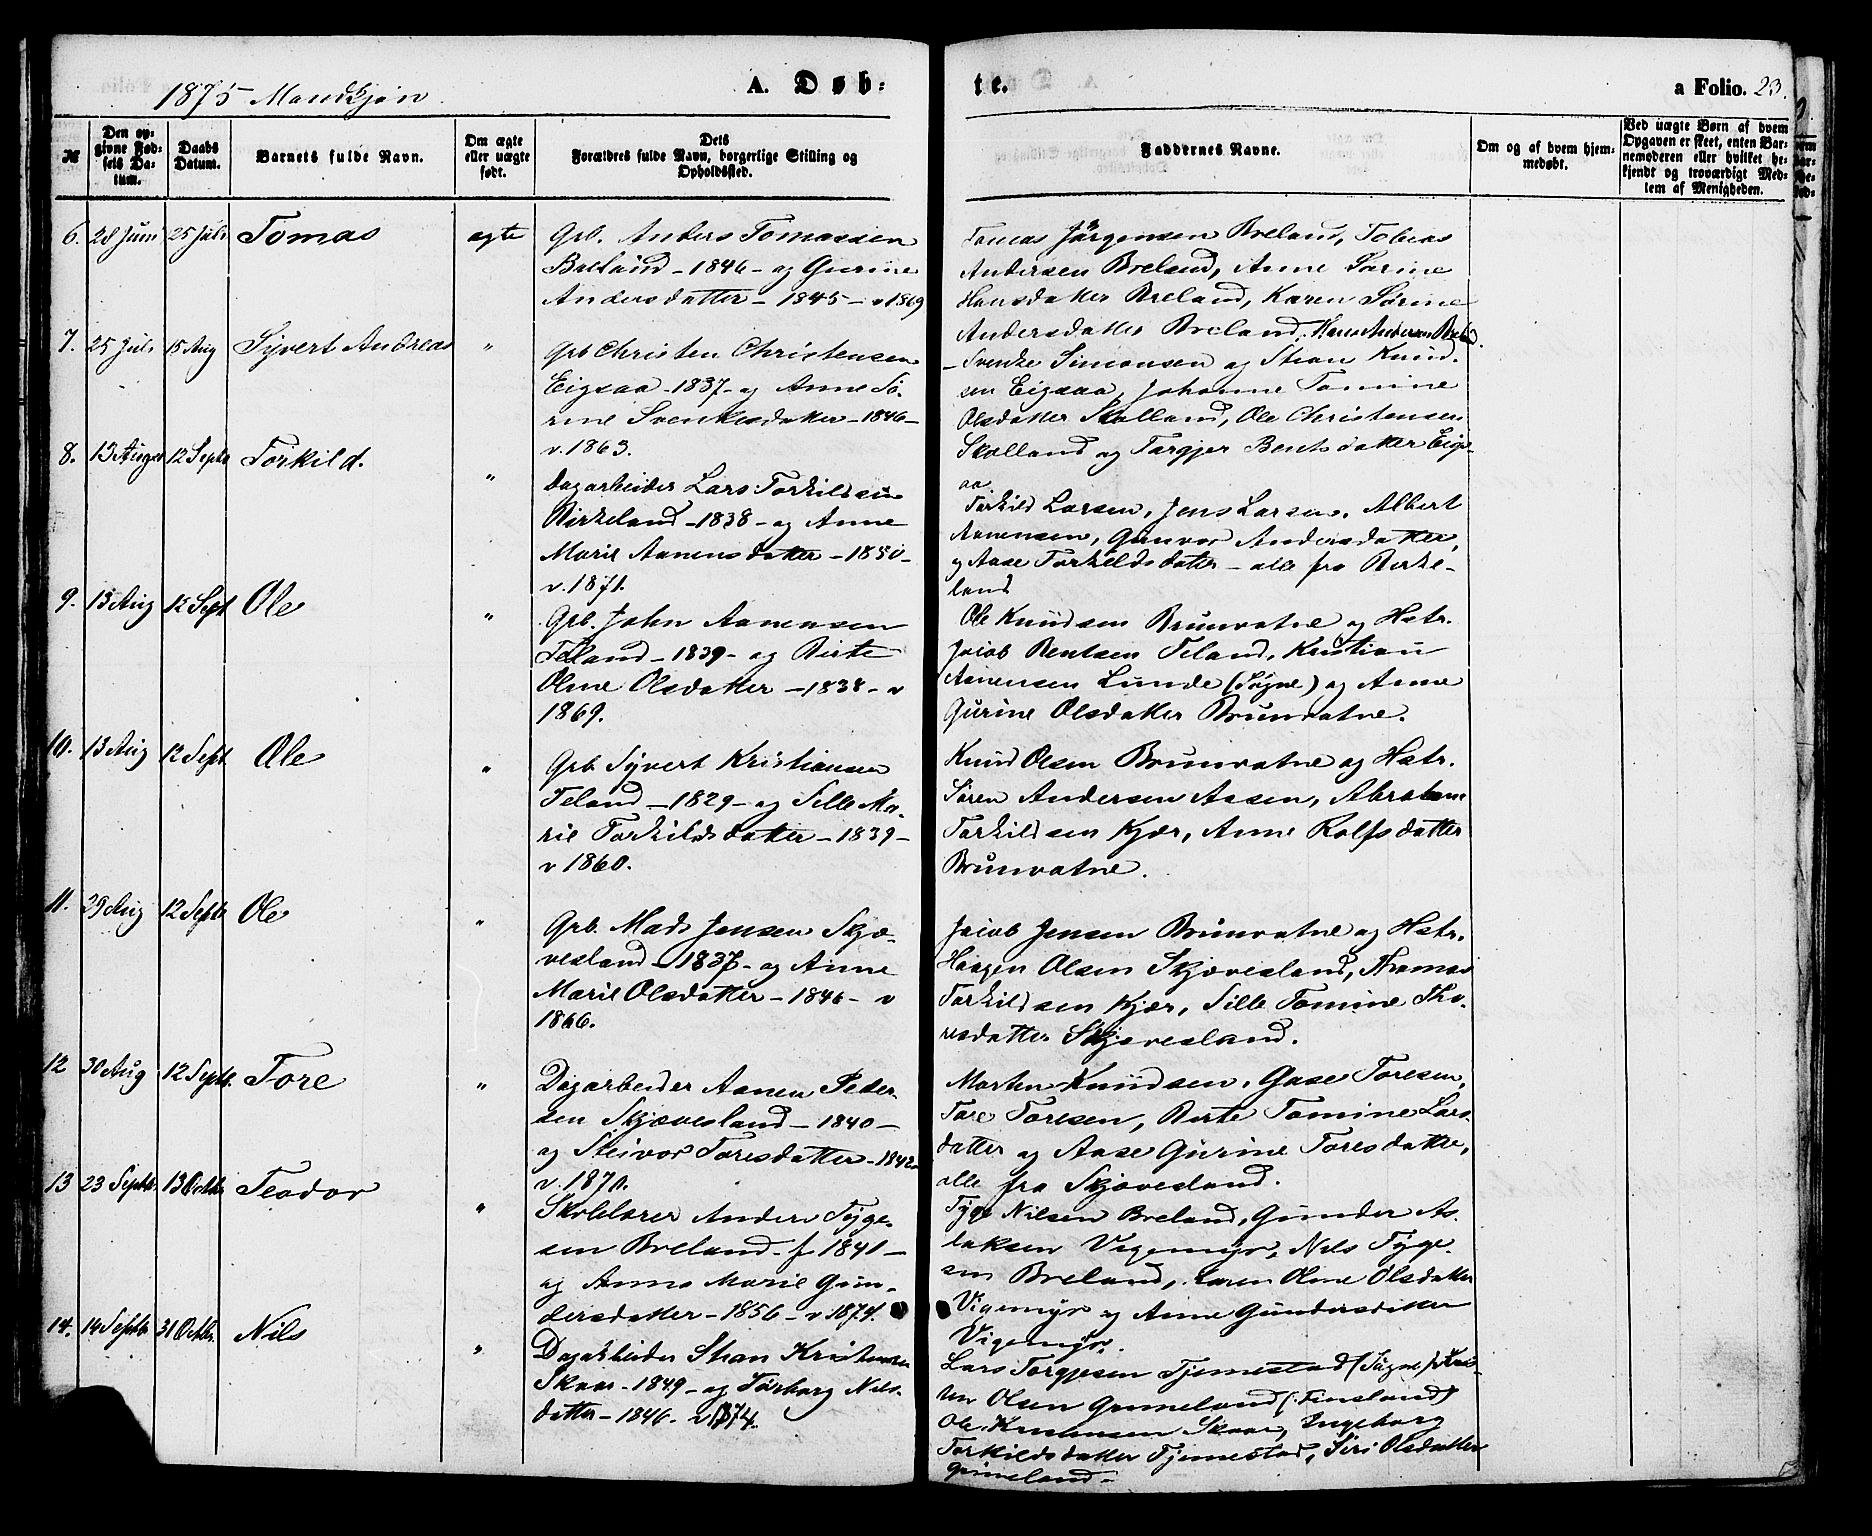 1875 Mandkjøn.
A. Døb:
te.
a Folio. 23.
№
Den op-
givne Fød-
sels Da-
tum.
Daabs
Datum.
Barnets fulde Navn.
Om ægte
eller uægte
født.
Dets
Forældres fulde Navn, borgerlige Stilling og
Opholdssted.
Faddernes Navne.
Om og af hvem hjem-
medøbt.
Ved uægte Børn af hvem
Opgaven er skeet, enten Bar-
nemoderen eller hvilket be-
kjendt og troværdigt Med-
lem af Menigheden.
6. 28 Juni 25 Juli Tomas ægte Grb. Anders Tomassen
Breland - 1846 - og Gurine
Andersdatter - 1845 - v 1869
Tomas Jørgensen Breland, Tobias
Andersen Breland, Anne Sørine
Hansdatter Breland, Karen Sørine
Andersdatter Breland, Hans Andersen Breland.
7. 25 Juli 15 Aug Syvert Andreas " Grb Christen Christensen
Eigsaa - 1837 - og Anne Sø-
rine Svenkesdatter - 1846 -
v. 1863.
Svenke Simonsen og Stian Knud-
sen Eigsaa, Johanne Tomine
Olsdatter Skolland, Ole Christensen
Skolland og Targjer Bentsdatter Eigs-
aa
8. 13 August 12 Septb Torkild. " Dagarbeider Lars Torkildsen
Birkeland - 1838 - og Anne
Marie Aanensdatter - 1850 -
v. 1871.
Torkild Larsen, Jens Larsen, Albert
Aanensen, Gunvor Andersdatter,
og Aase Torkildsdatter - alle fra Birke-
land
9. 13 Aug 12 Sept Ole " Grb. John Aanensen
Teland - 1839 - og Birte
Oline Olsdatter - 1838 - v
1869.
Ole Knudsen Brunvatne og Hstr.
Jacob Bentsen Teland, Kristian
Aanensen Lunde (Søgne) og Anne
Gurine Olsdatter Brunvatne.
10. 13 Aug 12 Sept Ole " Grb Syvert Kristiansen
Teland - 1829 - og Sille Ma-
rie Torkildsdatter - 1839 -
v 1860.
Knud Olsen Brunvatne og Hstr.
Søren Andersen Aasen, Abraham
Torkildsen Kjær, Anne Rolfsdatter
Brunvatne.
11. 29 Aug 12 Septb Ole " Grb. Mads Jensen Skjæ-
vesland - 1837 - og Anne
Marie Olsdatter - 1846 - v
1866.
Jacob Jensen Brunvatne og Hstr.
Haagen Olsen Skjævesland, Thomas
Torkildsen Kjær, Sille Tomine Tho-
resdatter Skjævesland.
12 30 Aug 12 Septb. Tore " Dagarbeider Aanen Peder-
sen Skjævesland - 1840 -
og Steivor Toresdatter - 1842
v. 1870.
Morten Knudsen, Gase Toresen,
Tore Toresen, Berte Tomine Lars-
datter og Aase Gurine Toresdatter,
alle fra Skjævesland.
13 23 Septb. 13 Octbr. Teodor " Skolelærer Anders Tyge-
sen Breland f 1841 -
og Anne Marie Gun-
dersdatter - 1856 - v 1874.
Tyge Nilsen Breland, Gunder As-
laksen Vigemyr, Nils Tyge-
sen Breland, Karen Oline Olsdatter
Vigemyr og Anne Gundersdatter
Vigemyr.
14. 14 Septb 31 Octbr. Nils " Dagarbeider Stian Kristensen
Skaar - 1849 - og Torborg Nils-
datter - 1846 - v 1874.
Lars Torgjesen Tjomestad (Søgne), Kris-
ten Olsen Grineland (Finsland)
Ole Kristensen Skaar, Ingeborg
Torkildsdatter Tjomestad, Siri Olsdatter
Grineland -